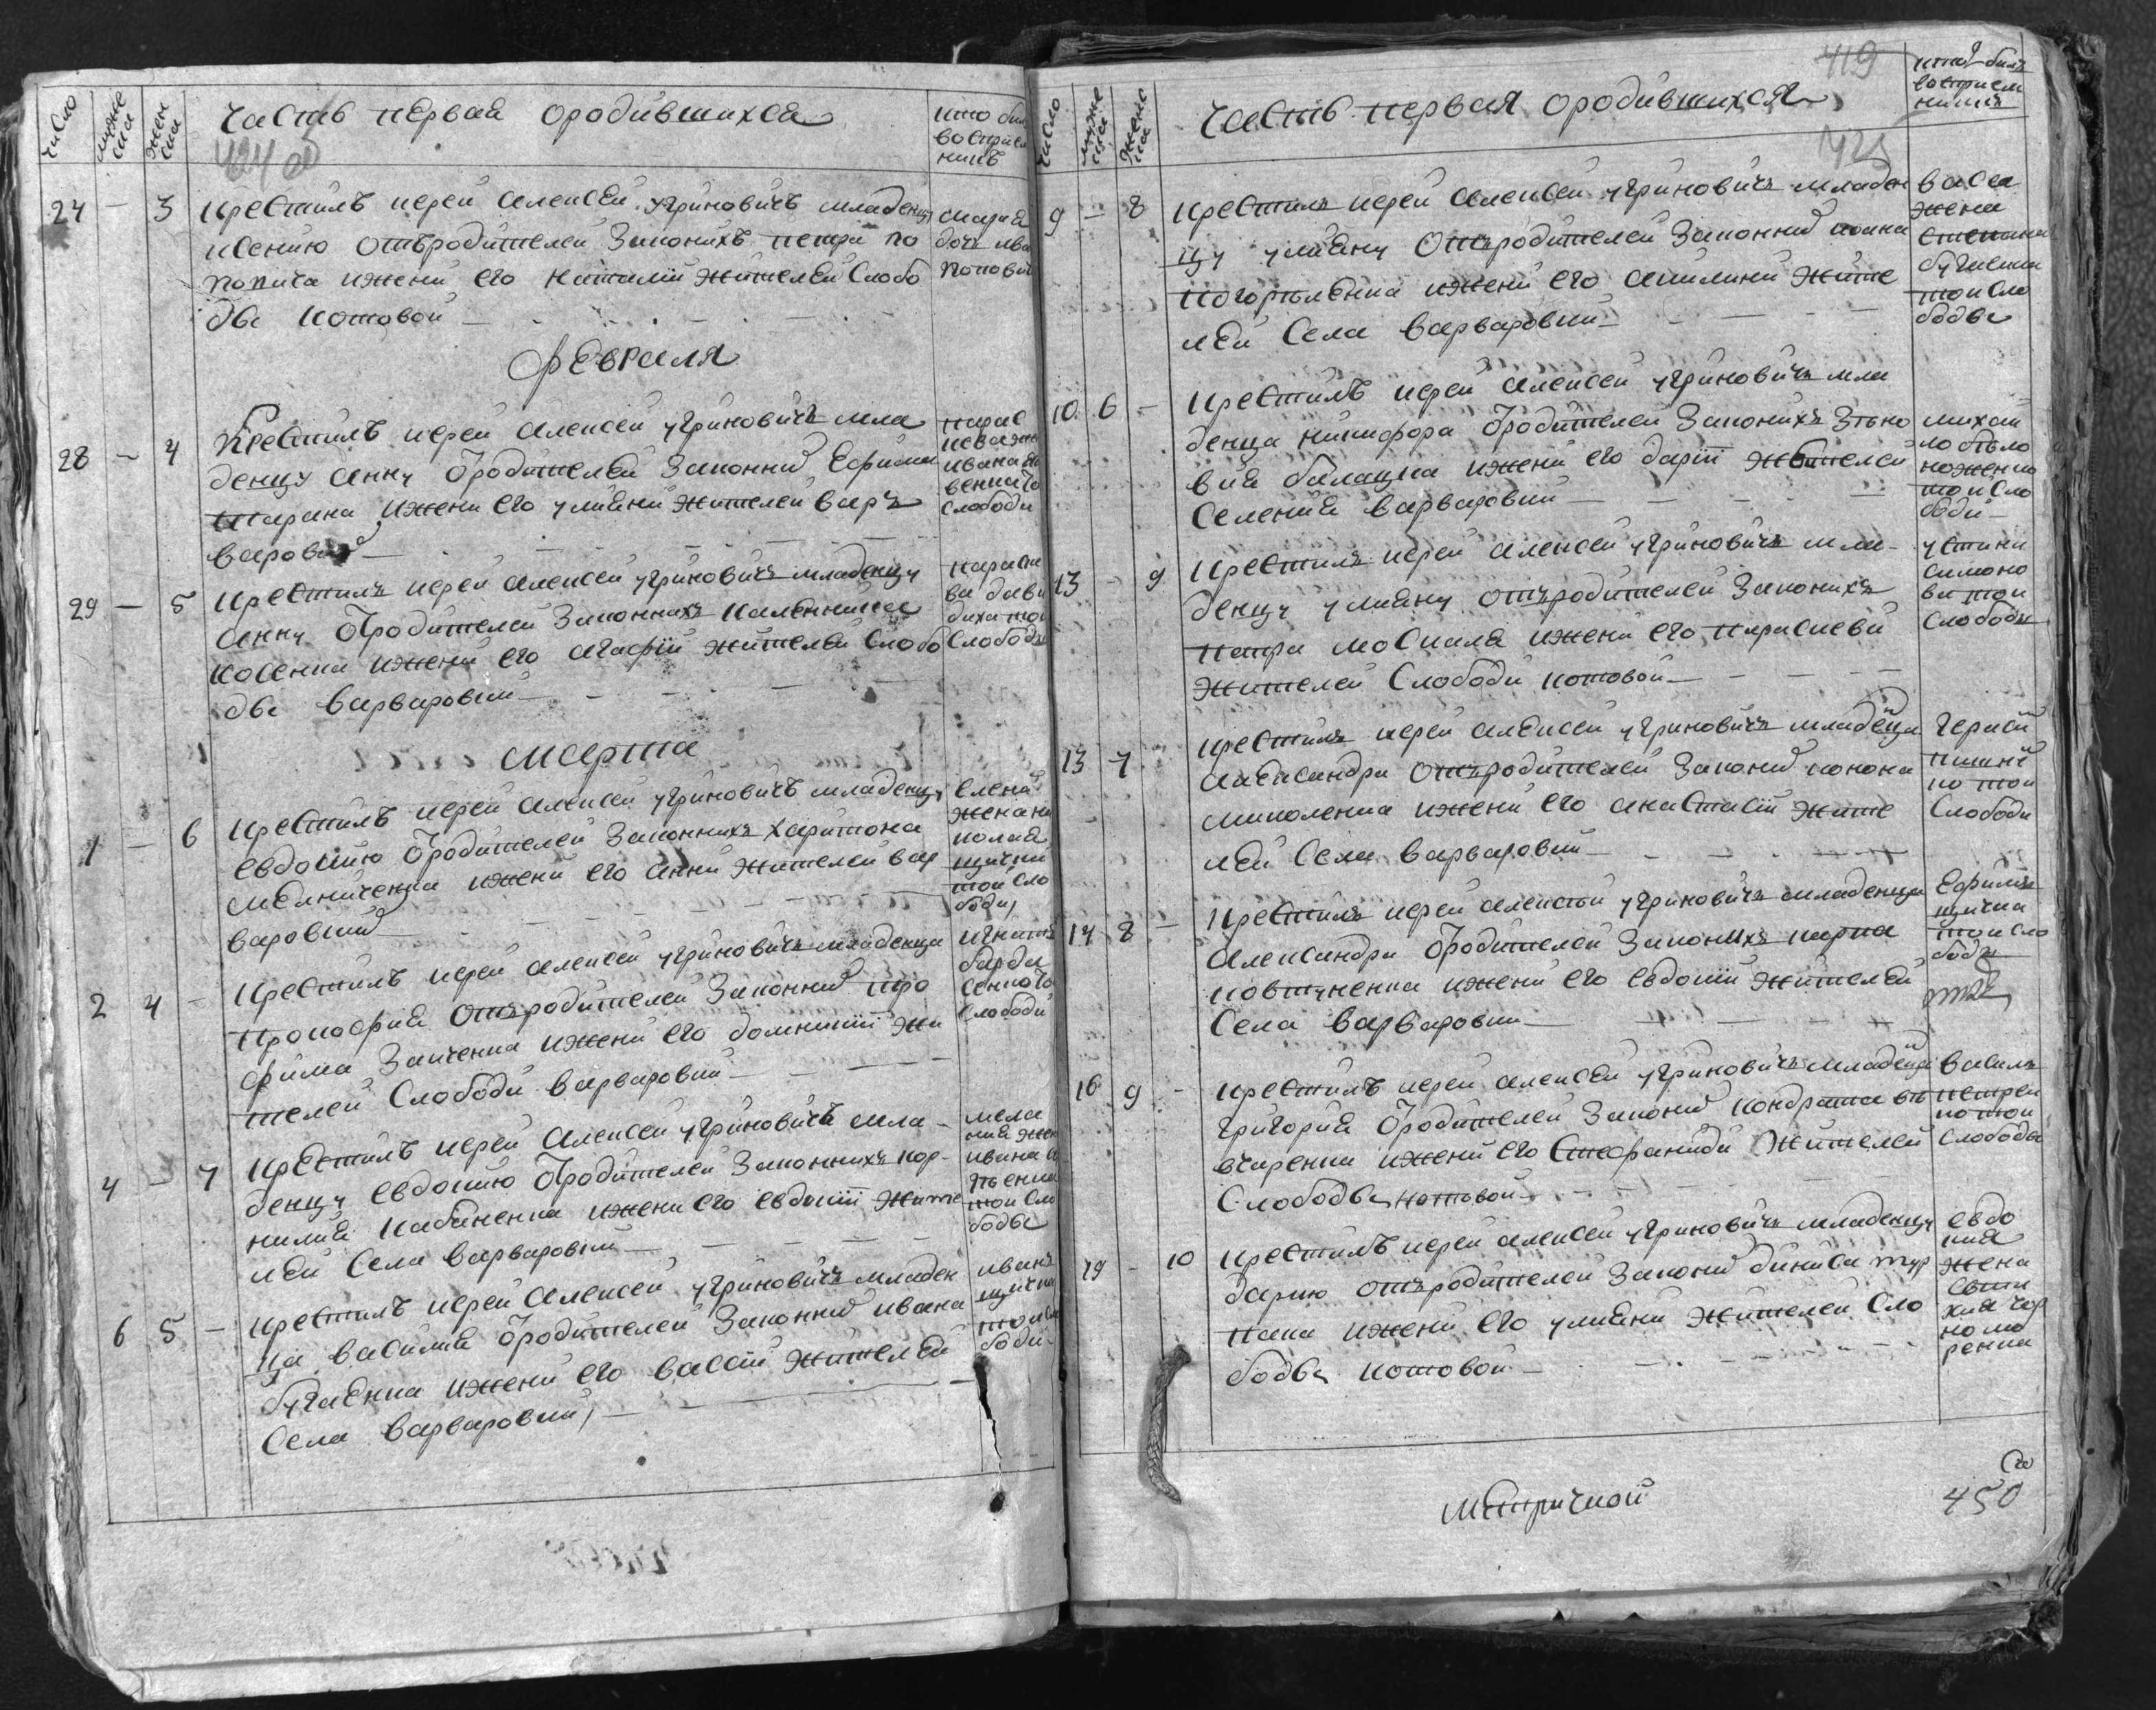 число
муже ска
жен ска
часть первая ородившихся
кто бил восприем никъ
424 об
24 — 3 крестилъ иерей алексей угриновичъ младенцу
ксению отъродителей законихъ петра по
повича ижени его наталиї жителей слобо
дѣ котовой
мария
дочъ ива
попови
февраля
28 — 4 Крестилъ иерей алексей угриновичъ мла
денцу анну ѿродителей законних Ефима
шарана ижени его улияни жителей вар
варовки
парас
кева жен
ивана
венка то
слободи
29 — 5 крестилъ иерей алексей угриновичъ младенцу
анну ѿродителей законнихъ каленника
косенка ижени его агафиї жителей слобо
дѣ варваровки
параске
ва дави
диха той
слободы
марта
1 — 6 крестилъ иерей алексей угриновичъ младенцу
евдокию ѿродителей законнихъ харитона
мелниченка ижени его анни жителей вар
варовки
елена
жена ни
колая
щучки
той сло
боди
2 4 — крестилъ иерей алексей угриновичъ младенца
прокофия отъродителей законних тро
фима заиченка ижени его домникиї жи
телей слободи варваровки
игнатъ
барда
сенко то
слободи
4 — 7 крестилъ иерей алексей угриновичъ мла
денцу евдокию ѿродителей законнихъ кор
нилия кабаненка ижени его евдокиї жите
лей села варваровки
мела
ния жен
ивана
ѣенка
той сло
бодѣ
6 5 — крестилъ иерей алексей угриновичъ младен
ца василия ѿродителей законних ивана
бугаенка ижени его вассиї жителей
села варваровки
иванъ
щучка
той сло
боди
419
число
муже ска
женс ка
часть первая ородившихся
кто билъ
восприем
никъ
425
9 — 8 крестилъ иерей алексей угриновичъ младен
цу улияну отъродителей законних ивана
погорѣленка ижени его акилини жите
лей села варваровки
васса
жена
степана
бугаенка
той сло
бодѣ
10 6 — крестилъ иерей алексей угриновичъ мла
денца никифора ѿродителей законихъ зѣно
вия балацка ижени его дариї жителей
селения варваровки
михай
ло бѣло
ноженко
той сло
боди
13 — 9 крестилъ иерей алексей угриновичъ мла
денцу улияну отъродителей законихъ
петра москаля ижени его параскеви
жителей слободи котовой
устини
симоно
ва той
слободы
13 7 крестилъ иерей алексей угриновичъ младенца
александра отъродителей законих конона
миколенка ижени его анастасиї жите
лей села варваровки
гераси
по той
слободи
14 8 — крестилъ иерей алексѣй угриновичъ младенца
александра ѿродителей законихъ карпа
ковтуненка ижени его евдокиї жителей
села варваровки
Ефимъ
щучка
той сло
боды
16 9 — крестилъ иерей алексей угриновичъ младенца
григория ѿродителей законих кондрата ов
вчаренка ижени его стефаниди жителей
слободѣ котовой
василъ
петрен
ко той
слободы
19 — 10 крестилъ иерей алексей угриновичъ младенцу
дарию отъродителей законих диниса тур
пака ижени его улияни жителей сло
бодѣ котовой
евдо
кия
жена
евста
хия чор
номо
ренка
метричной
450